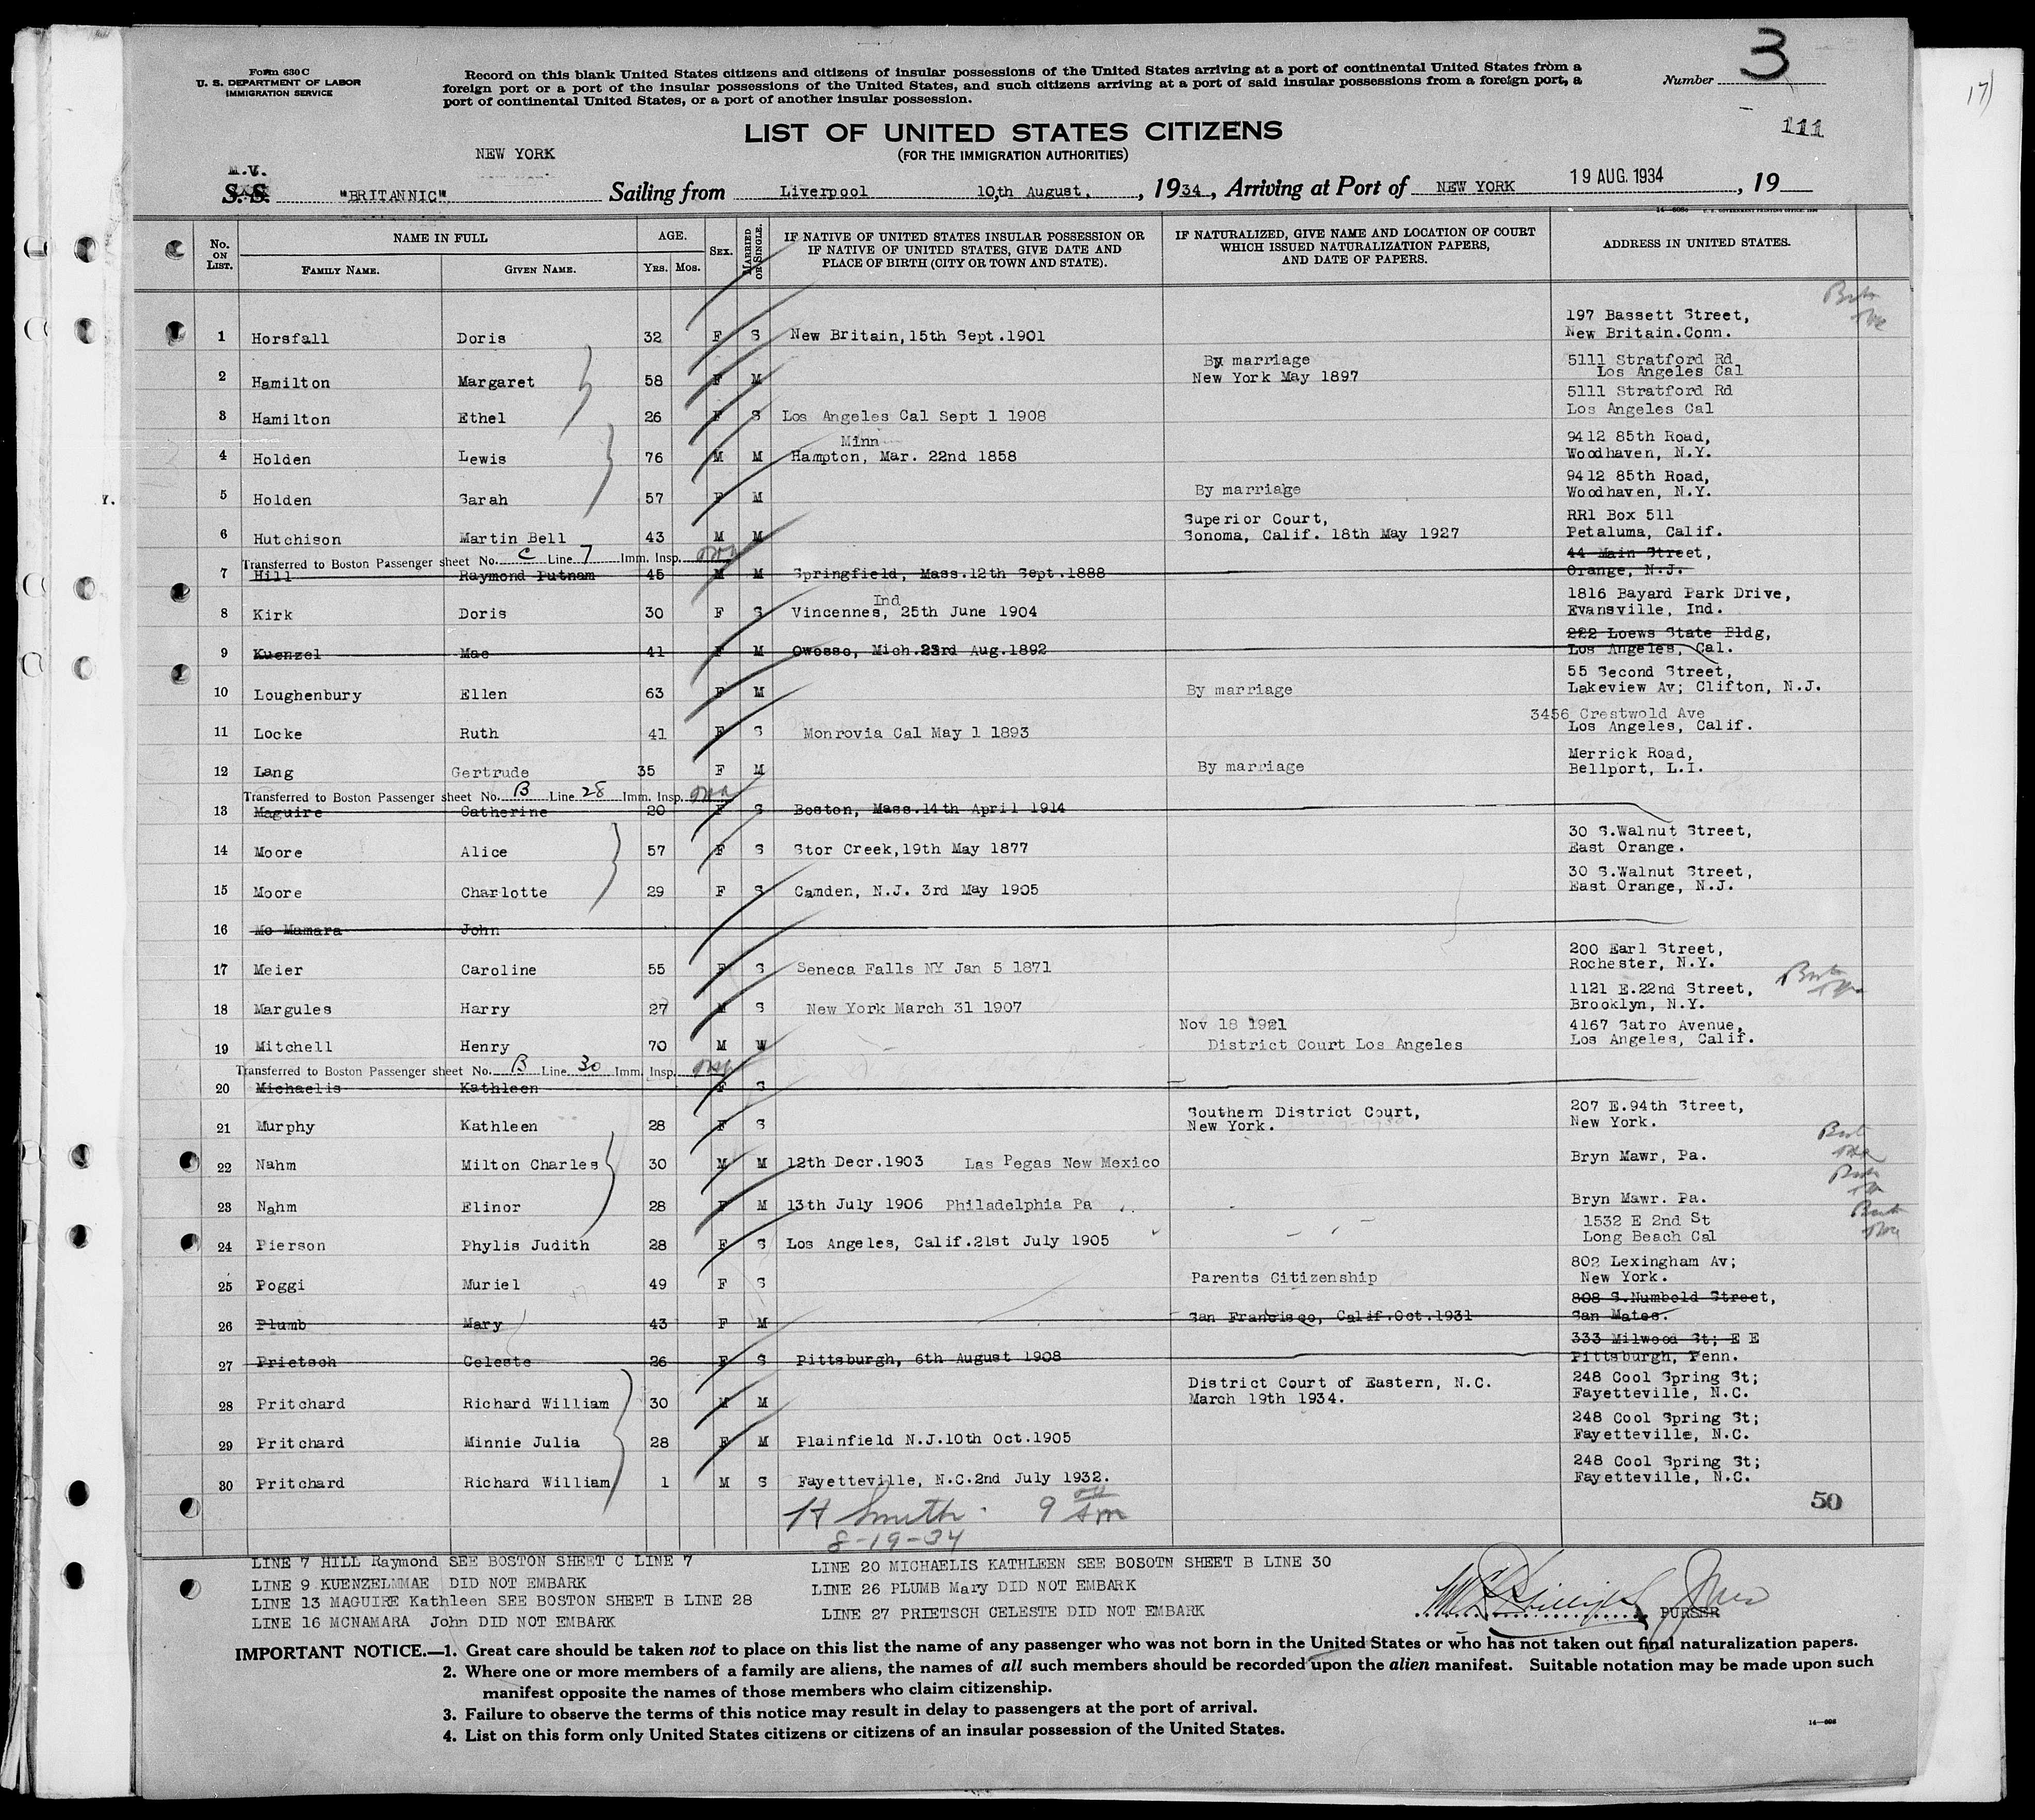 3
17
Form 630 C
U. S. DEPARTMENT OF LABOR
IMMIGRATION SERVICE
Record on this blank United States citizens and citizens of insular possessions of the United States arriving at a port of continental United States from a
foreign port or a port of the insular possessions of the United States, and such citizens arriving at a port of said insular possessions from a foreign port, a
port of continental United States, or a port of another insular possession.
Number
111
LIST OF UNITED STATES CITIZENS
(FOR THE IMMIGRATION AUTHORITIES)
NEW YORK
M.V.
S. S. "BRITANNIC" Sailing from Liverpool 10,th August, , 1934, Arriving at Port of NEW YORK 19 AUG. 1934 , 19
No. ON LIST. NAME IN FULL FAMILY NAME. GIVEN NAME. AGE. YRS. MOS. SEX. MARRIED OR SINGLE. IF NATIVE OF UNITED STATES INSULAR POSSESSION OR IF NATIVE OF UNITED STATES, GIVE DATE AND PLACE OF BIRTH (CITY OR TOWN AND STATE). IF NATURALIZED, GIVE NAME AND LOCATION OF COURT WHICH ISSUED NATURALIZATION PAPERS, AND DATE OF PAPERS. ADDRESS IN UNITED STATES.
197 Bassett Street,
1 Horsfall Doris 32 F S New Britain,15th Sept.1901 New Britain.Conn.
By marriage 5111 Stratford Rd
2 Hamilton Margaret 58 F M New York May 1897 Los Angeles Cal
5111 Stratford Rd
3 Hamilton Ethel 26 F S Los Angeles Cal Sept 1 1908 Los Angeles Cal
Minn 9412 85th Road,
4 Holden Lewis 76 M M Hampton, Mar. 22nd 1858 Woodhaven, N.Y.
9412 85th Road,
5 Holden Sarah 57 F M By marriage Woodhaven, N.Y.
Superior Court, RR1 Box 511
6 Hutchison Martin Bell 43 M M Sonoma, Calif. 18th May 1927 Petaluma, Calif.
Transferred to Boston Passenger sheet No. C Line 7 Imm. Insp. 44 Main Street,
7 Hill Raymond Putnam 45 M M Springfield, Mass.12th Sept.1888 Orange, N.J.
Ind 1816 Bayard Park Drive,
8 Kirk Doris 30 F S Vincennes, 25th June 1904 Evansville, Ind.
222 Loews State Bldg,
9 Kuenzel Mae 41 F M Owosso, Mich.23rd Aug.1892 Los Angeles, Cal.
55 Second Street,
10 Loughenbury Ellen 63 F M By marriage Lakeview Av; Clifton, N.J.
3456 Crestwold Ave
11 Locke Ruth 41 F S Monrovia Cal May 1 1893 Los Angeles, Calif.
Merrick Road,
12 Lang Gertrude 35 F M By marriage Bellport, L.I.
Transferred to Boston Passenger sheet No. B Line 28 Imm. Insp.
13 Maguire Catherine 20 F S Boston, Mass.14th April 1914
30 S.Walnut Street,
14 Moore Alice 57 F S Stor Creek,19th May 1877 East Orange.
30 S.Walnut Street,
15 Moore Charlotte 29 F S Camden, N.J. 3rd May 1905 East Orange, N.J.
16 Mc Mamara John
200 Earl Street,
17 Meier Caroline 55 F S Seneca Falls NY Jan 5 1871 Rochester, N.Y.
1121 E.22nd Street,
18 Margules Harry 27 M S New York March 31 1907 Brooklyn, N.Y.
Nov 18 1921 4167 Satro Avenue,
19 Mitchell Henry 70 M W District Court Los Angeles Los Angeles, Calif.
Transferred to Boston Passenger sheet No. B Line 30 Imm. Insp.
20 Michaelis Kathleen F S
Southern District Court, 207 E.94th Street,
21 Murphy Kathleen 28 F S New York. New York.
22 Nahm Milton Charles 30 M M 12th Decr.1903 Las Pegas New Mexico Bryn Mawr, Pa.
23 Nahm Elinor 28 F M 13th July 1906 Philadelphia Pa Bryn Mawr. Pa.
1532 E 2nd St
24 Pierson Phylis Judith 28 F S Los Angeles, Calif.21st July 1905 Long Beach Cal
802 Lexingham Av;
25 Poggi Muriel 49 F S Parents Citizenship New York.
808 S.Numbold Street,
26 Plumb Mary 43 F M San Francisco, Calif.Oct.1931 San Mateo.
333 Milwood St; E E
27 Prietsch Celeste 26 F S Pittsburgh, 6th August 1908 Pittsburgh, Penn.
District Court of Eastern, N.C. 248 Cool Spring St;
28 Pritchard Richard William 30 M M March 19th 1934. Fayetteville, N.C.
248 Cool Spring St;
29 Pritchard Minnie Julia 28 F M Plainfield N.J.10th Oct.1905 Fayetteville, N.C.
248 Cool Spring St;
30 Pritchard Richard William 1 M S Fayetteville, N.C.2nd July 1932. Fayetteville, N.C.
H Smith 9 Am
50
8-19-34
LINE 7 HILL Raymond SEE BOSTON SHEET C LINE 7
LINE 9 KUENZELMMAE DID NOT EMBARK
LINE 13 MAGUIRE Kathleen SEE BOSTON SHEET B LINE 28
LINE 16 MCNAMARA John DID NOT EMBARK
LINE 20 MICHAELIS KATHLEEN SEE BOSOTN SHEET B LINE 30
LINE 26 PLUMB Mary DID NOT EMBARK
LINE 27 PRIETSCH CELESTE DID NOT EMBARK
PURSER
IMPORTANT NOTICE.—1. Great care should be taken not to place on this list the name of any passenger who was not born in the United States or who has not taken out final naturalization papers.
2. Where one or more members of a family are aliens, the names of all such members should be recorded upon the alien manifest. Suitable notation may be made upon such
manifest opposite the names of those members who claim citizenship.
3. Failure to observe the terms of this notice may result in delay to passengers at the port of arrival.
4. List on this form only United States citizens or citizens of an insular possession of the United States.